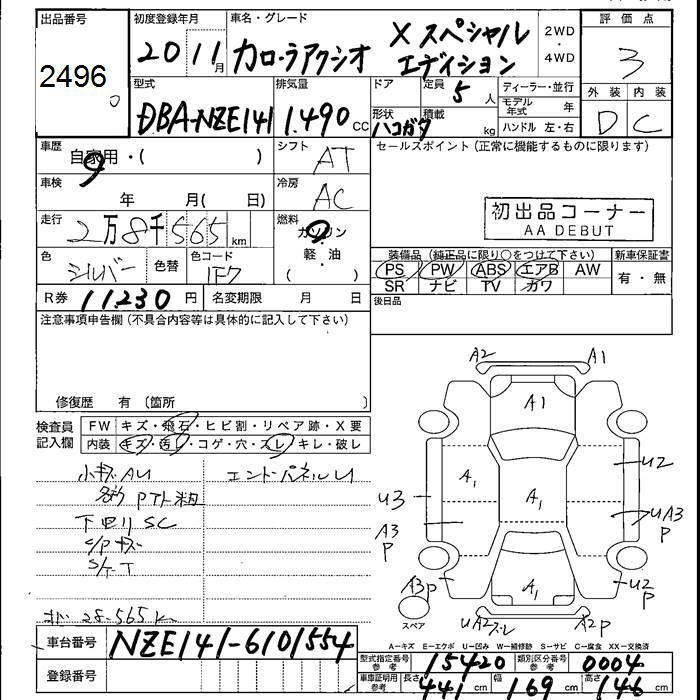 出品番号 初度登録年月 車名・グレード 評価点
2496 20 11月 カローラアクシオ Xスペシャルエディション 2WD・4WD 3
型式 排気量 ドア 定員 5人 ディーラー・並行 外装 内装
DBA-NZE141 1.490cc 形状 ハコガタ 積載 kg モデル年式 年 D C
ハンドル 左・右
車歴 自家用・( ) シフト AT セールスポイント (正常に機能するものに限ります)
車検 年 月( 日) 冷房 AC
初出品コーナー
AA DEBUT
走行 2万8千565km 燃料 ガソリン・軽・油( )
色 シルバー 色替 色コード 1F7
装備品 (純正品に限り○をつけて下さい) 新車保証書
PS PW ABS エアB AW 有・無
SR ナビ TV カワ
R券 11230円 名変期限 月 日 後日品
注意事項申告欄 (不具合内容等は具体的に記入して下さい)
修復歴 有 (箇所
A2 A1
A1
検査員記入欄 FW キズ・飛石・ヒビ割・リペア跡・X要
内装 キズ・汚レ・コゲ・穴・スレ・キレ・破レ
小キズAU エンドパネルU
下回りSC
A1 A1 U2
U3 A3 P UA3 P
A3P A1 U2 P
スペア UA2 A2P
28.565K
車台番号 NZE141-6101554
A-キズ E-エクボ U-凹み W-補修跡 S-サビ C-腐食 XX-交換済
型式指定番号 参考 15420 類別区分番号 参考 0004
登録番号 車庫証明用 参考 長さ 441cm 幅 169cm 高さ 146cm